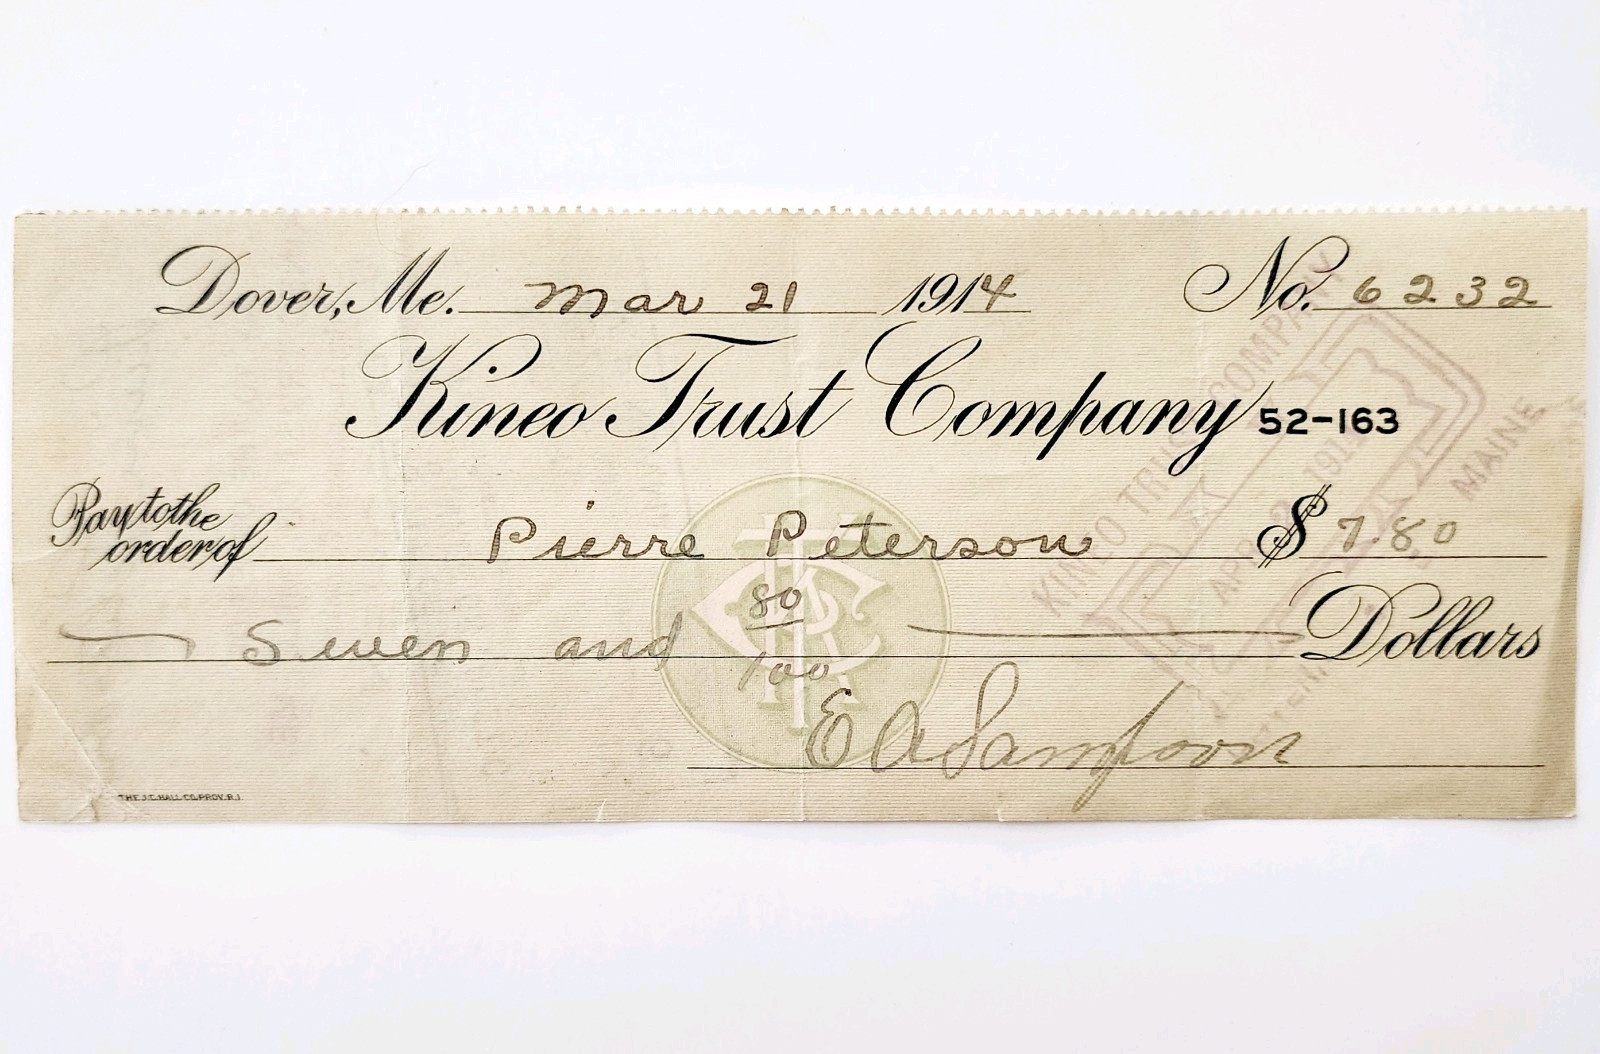 Dover, Me. Mar 21 1914 No. 6232
Kineo Trust Company 52-163
Pay to the
order of Pierre Peterson $ 7.80
Seven and 80/100 Dollars
E A Sampson
THE J.C. HALL CO. PROV. R.I.
KINEO TRUST COMPANY
APR 2 191
MAINE